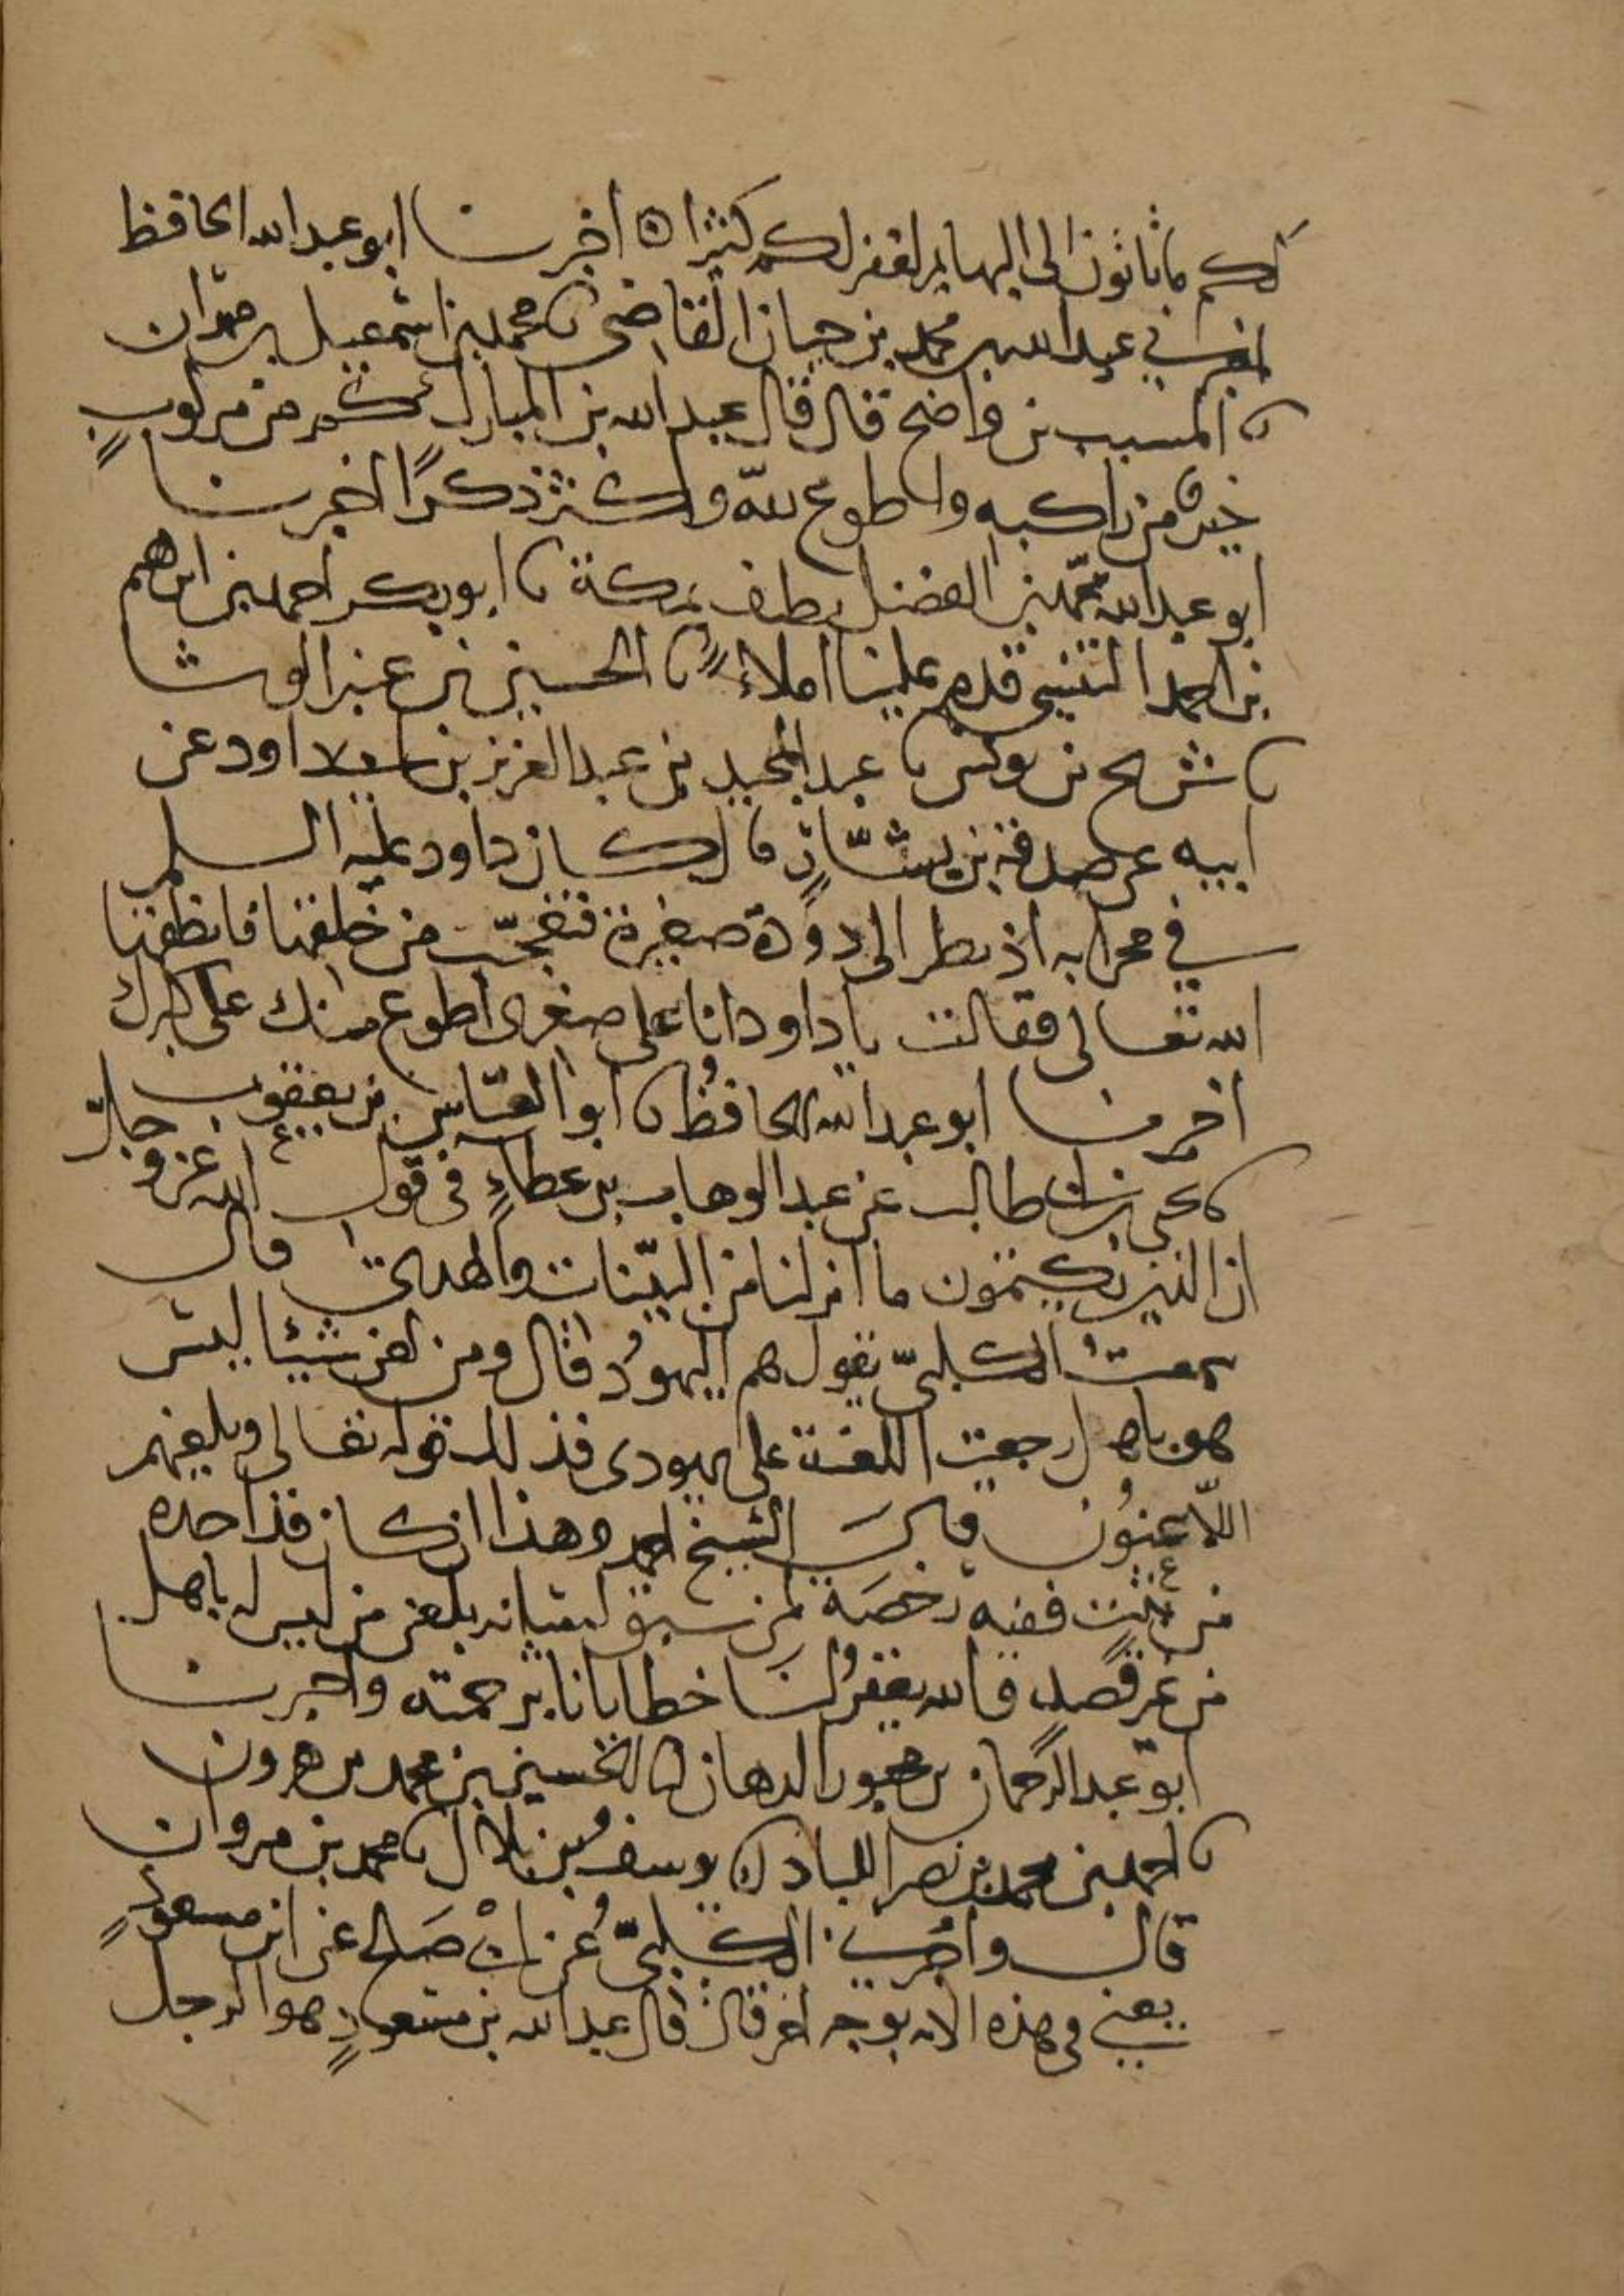 لكم ما تأتون الى البهايم لغفر لكم كثيرا ۞ اخبرنا ابو عبد الله الحافظ
اخبرني عبد الله بن محمد بن حيان القاضي نا محمد بن اسمعيل بن مهران
نا المسيب بن واضح قال قال عبد الله بن المبارك كم من مركوب
خير من راكبه واطوع لله واكثر ذكرا اخبرنا
ابو عبد الله محمد بن الفضل بن نظيف بمكة نا ابو بكر احمد بن ابرهيم
بن احمد التنيسي قدم علينا املاء نا الحسين بن عنبر الوشا
نا شريح بن يونس نا عبد المجيد بن عبد العزيز بن ابي داود عن
ابيه عن صدقة بن يسار قال كان داود عليه السلم
في محرابه اذ نظر الى دودة صغيرة فتعجب من خلقها فانطقها
الله تعالى فقالت يا داود انا على صغرى اطوع منك على كبرك
اخبرنا ابو عبد الله الحافظ نا ابو العباس بن يعقوب
نا يحيى بن ابي طالب عن عبد الوهاب بن عطاء في قول الله عز و جل
ان الذين يكتمون ما انزلنا من البينات والهدى قال
سمعت الكلبي يقول هم اليهود قال ومن لعن شيئا ليس
هو باهل رجعت اللعنة على يهودى فذلك قوله تعالى ويلعنهم
اللاعنون قال الشيخ احمد وهذا ان كان قد اخذه
من ثبت ففيه رخصة لمن سبق لسانه بلعن من ليس له باهل
من غير قصد والله يغفر لنا خطايانا برحمته واخبرنا
ابو عبد الرحمان بن محبور الدهان نا الحسين بن محمد بن هرون
نا احمد بن محمد بن نصر اللباد نا يوسف بن بلال نا محمد بن مروان
قال واخبرني الكلبي عن ابي صلح عن ابن مسعود
يعني في هذه الاية بوجه اخر قال قال عبد الله بن مسعود هو الرجل